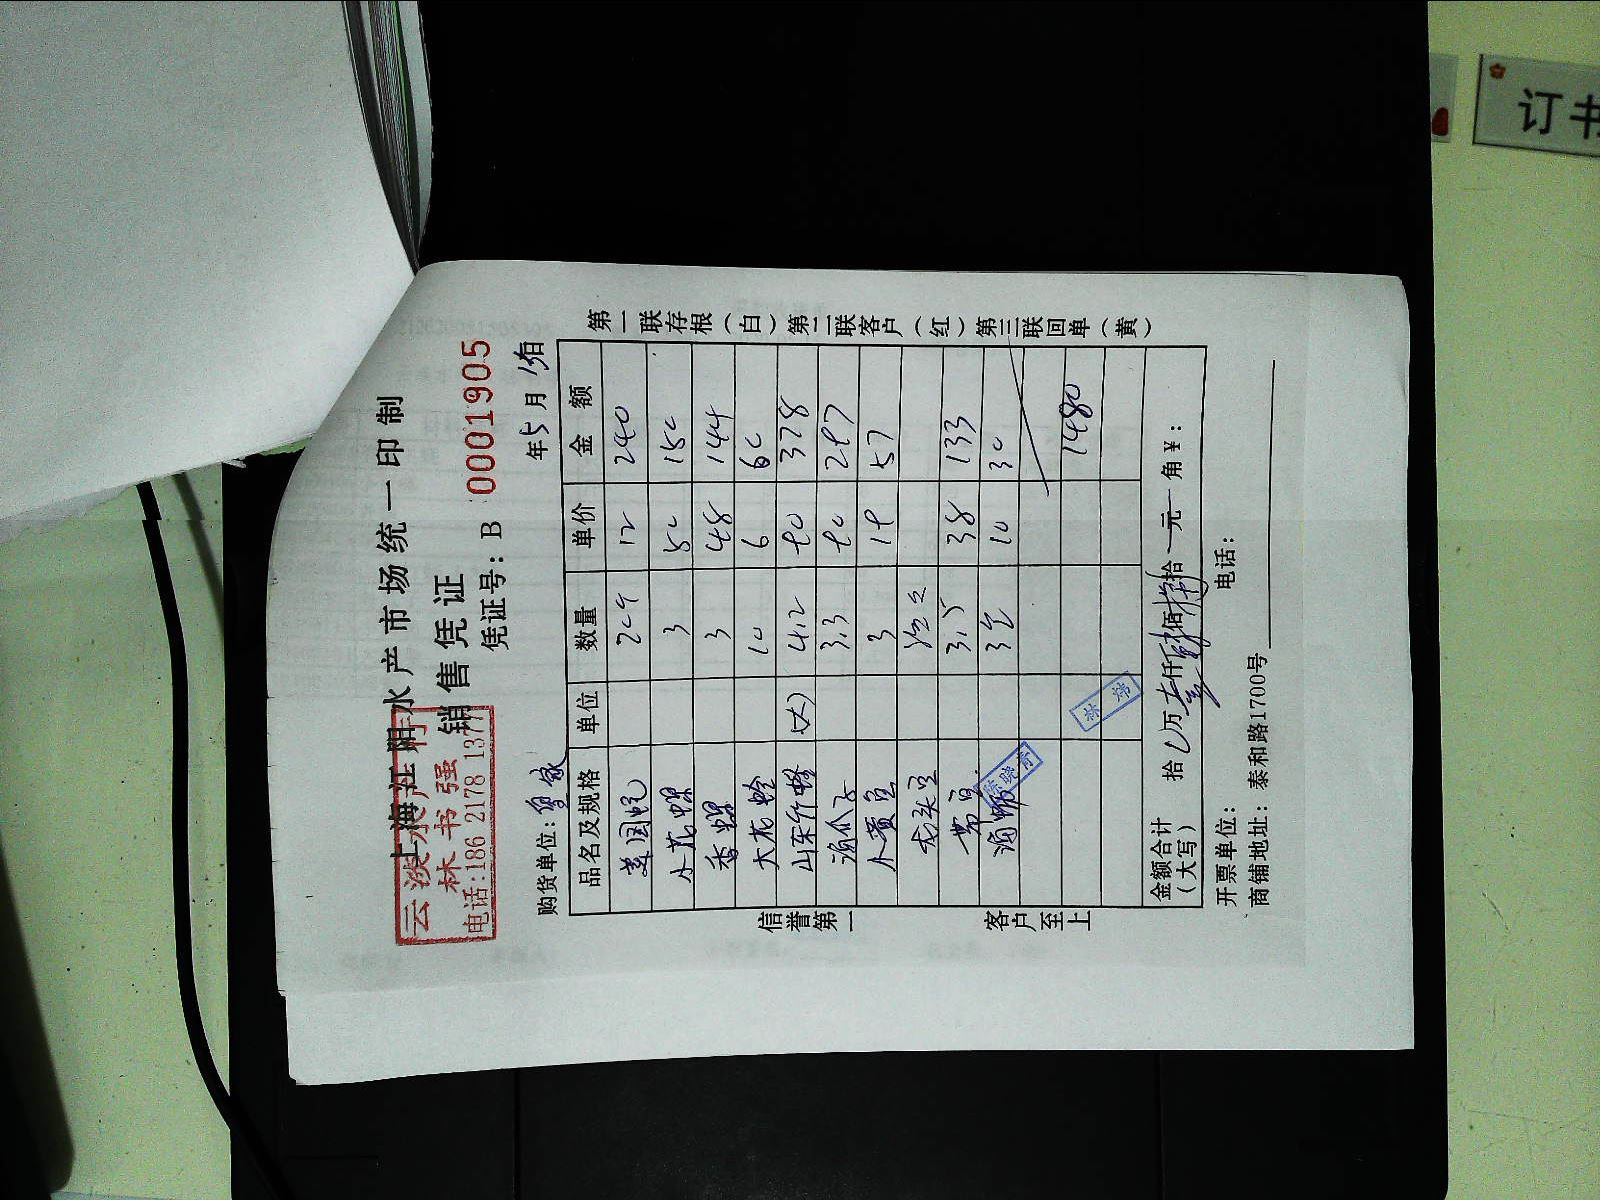 上海江阳水产市场统一印制
销售凭证
凭证号：B 0001905
云淡水产行
林书强
电话:186 2178 1377
购货单位： 年5月1日
品名及规格 单位 数量 单价 金额
美国 20个 12 240
小花螺 3 50 150
香螺 3 48 144
大花蛤 10 6 60
山东竹蛏 (大) 4.2 90 378
3.3 90 297
小黄 3 19 57
3.5 38 133
3 10 30
1480
林炜
晓青
金额合计（大写） 拾 万 仟 佰 拾 元 角 ¥：
开票单位： 电话：
商铺地址：泰和路1700号
信誉第一 客户至上
第一联存根（白）第二联客户（红）第三联回单（黄）
订书